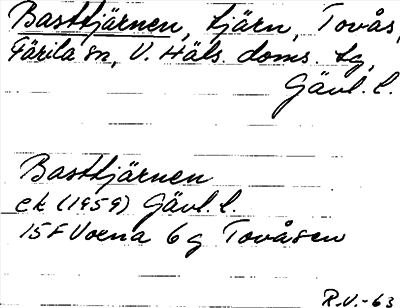 Basttjärnen, tjärn, Tovås,
Färila sn, V. Häls. doms. tg,
Gävl. l.
Basttjärnen
ek (1959) Gävl. l.
15F Voxna 6g Tovåsen
R.V.-63